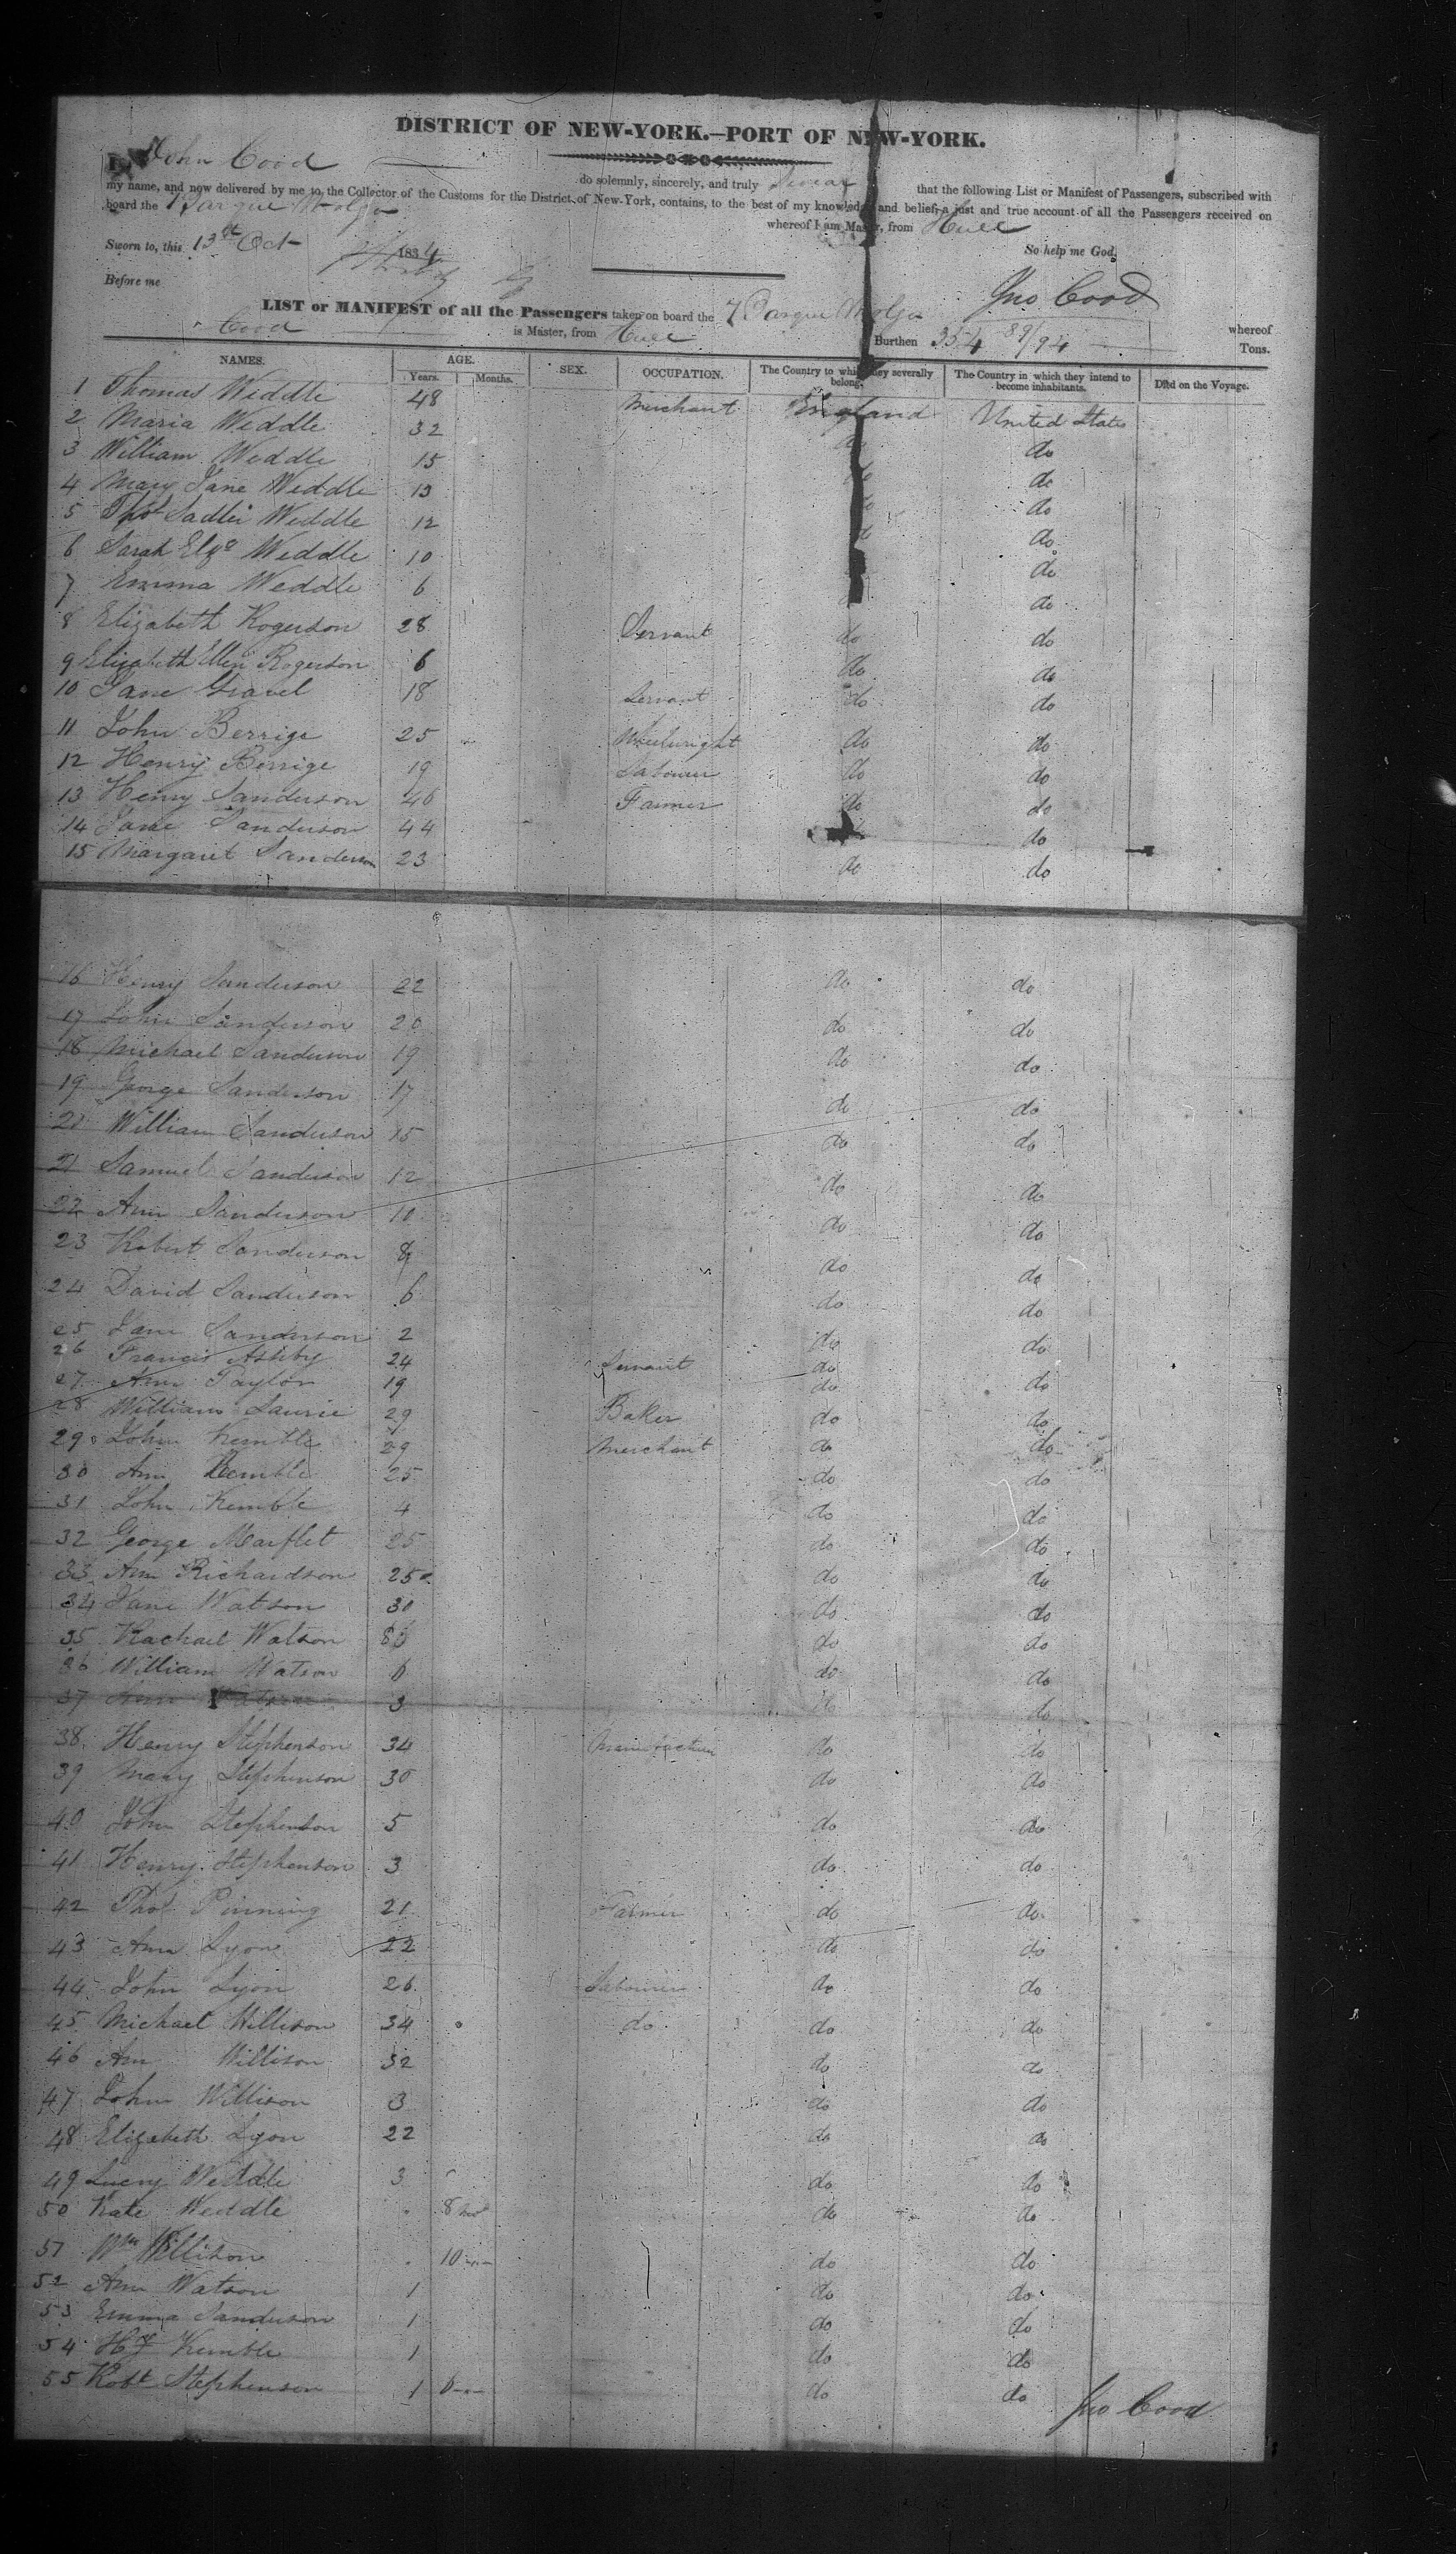 DISTRICT OF NEW-YORK.—PORT OF NEW-YORK.
I, John Cood do solemnly, sincerely, and truly Swear that the following List or Manifest of Passengers, subscribed with
my name, and now delivered by me to the Collector of the Customs for the District of New-York, contains, to the best of my knowledge and belief, a just and true account of all the Passengers received on
board the Barque whereof I am Master, from Hull
Sworn to, this 13th Oct 1834 So help me God,
Before me Jno Cood
LIST or MANIFEST of all the Passengers taken on board the Barque whereof
Cood is Master, from Hull Burthen 354 89/94 Tons.
NAMES. AGE. SEX. OCCUPATION. The Country to which they severally belong. The Country in which they intend to become inhabitants. Died on the Voyage.
Years. Months.
1 Thomas Weddle 48 Merchant England United States
2 Maria Weddle 32 do do
3 William Weddle 15 do do
4 Mary Jane Weddle 13 do do
5 Thos Sadler Weddle 12 do do
6 Sarah Elza Weddle 10 do
7 Emma Weddle 6 do
8 Elizabeth Rogerson 28 Servant do do
9 Elizabeth Ellen Rogerson 6 do do
10 Jane Gravel 18 Servant do do
11 John Berrige 25 Wheelwright do do
12 Henry Berrige 19 Labourer do do
13 Henry Sanderson 46 Farmer do do
14 Jane Sanderson 44 do
15 Margaret Sanderson 23 do do
16 Henry Sanderson 22 do do
17 John Sanderson 20 do do
18 Michael Sanderson 19 do do
19 George Sanderson 17 do do
20 William Sanderson 15 do do
21 Samuel Sanderson 12 do do
22 Ann Sanderson 10 do do
23 Robert Sanderson 8 do do
24 David Sanderson 6 do do
25 Jane Sanderson 2 do do
26 Francis Ashby 24 Servant do
27 Ann Taylor 19 do do
28 William Laurie 29 Baker do do
29 John Kemble 29 Merchant do do
30 Ann Kemble 25 do do
31 John Kemble 4 do do
32 George Marflet 25 do do
33 Ann Richardson 25 do do
34 Jane Watson 30 do do
35 Rachael Watson do do
36 William Watson 6 do do
37 Ann Watson 3 do do
38 Henry Stephenson 34 Manufacturer do do
39 Mary Stephenson 30 do do
40 John Stephenson 5 do do
41 Henry Stephenson 3 do do
42 Thos Pinning 21 Farmer do do
43 Ann Lyon 22 do do
44 John Lyon 26 Labourer do do
45 Michael Willison 34 do do do
46 Ann Willison 32 do do
47 John Willison 3 do do
48 Elizabeth Lyon 22 do do
49 Lucy Weddle 3 do do
50 Kate Weddle 8 mos do do
51 Wm Willison 10 do do
52 Ann Watson 1 do do
53 Emma Sanderson 1 do do
54 Hy Kemble 1 do do
55 Robt Stephenson 1 6 do do
Jno Cood